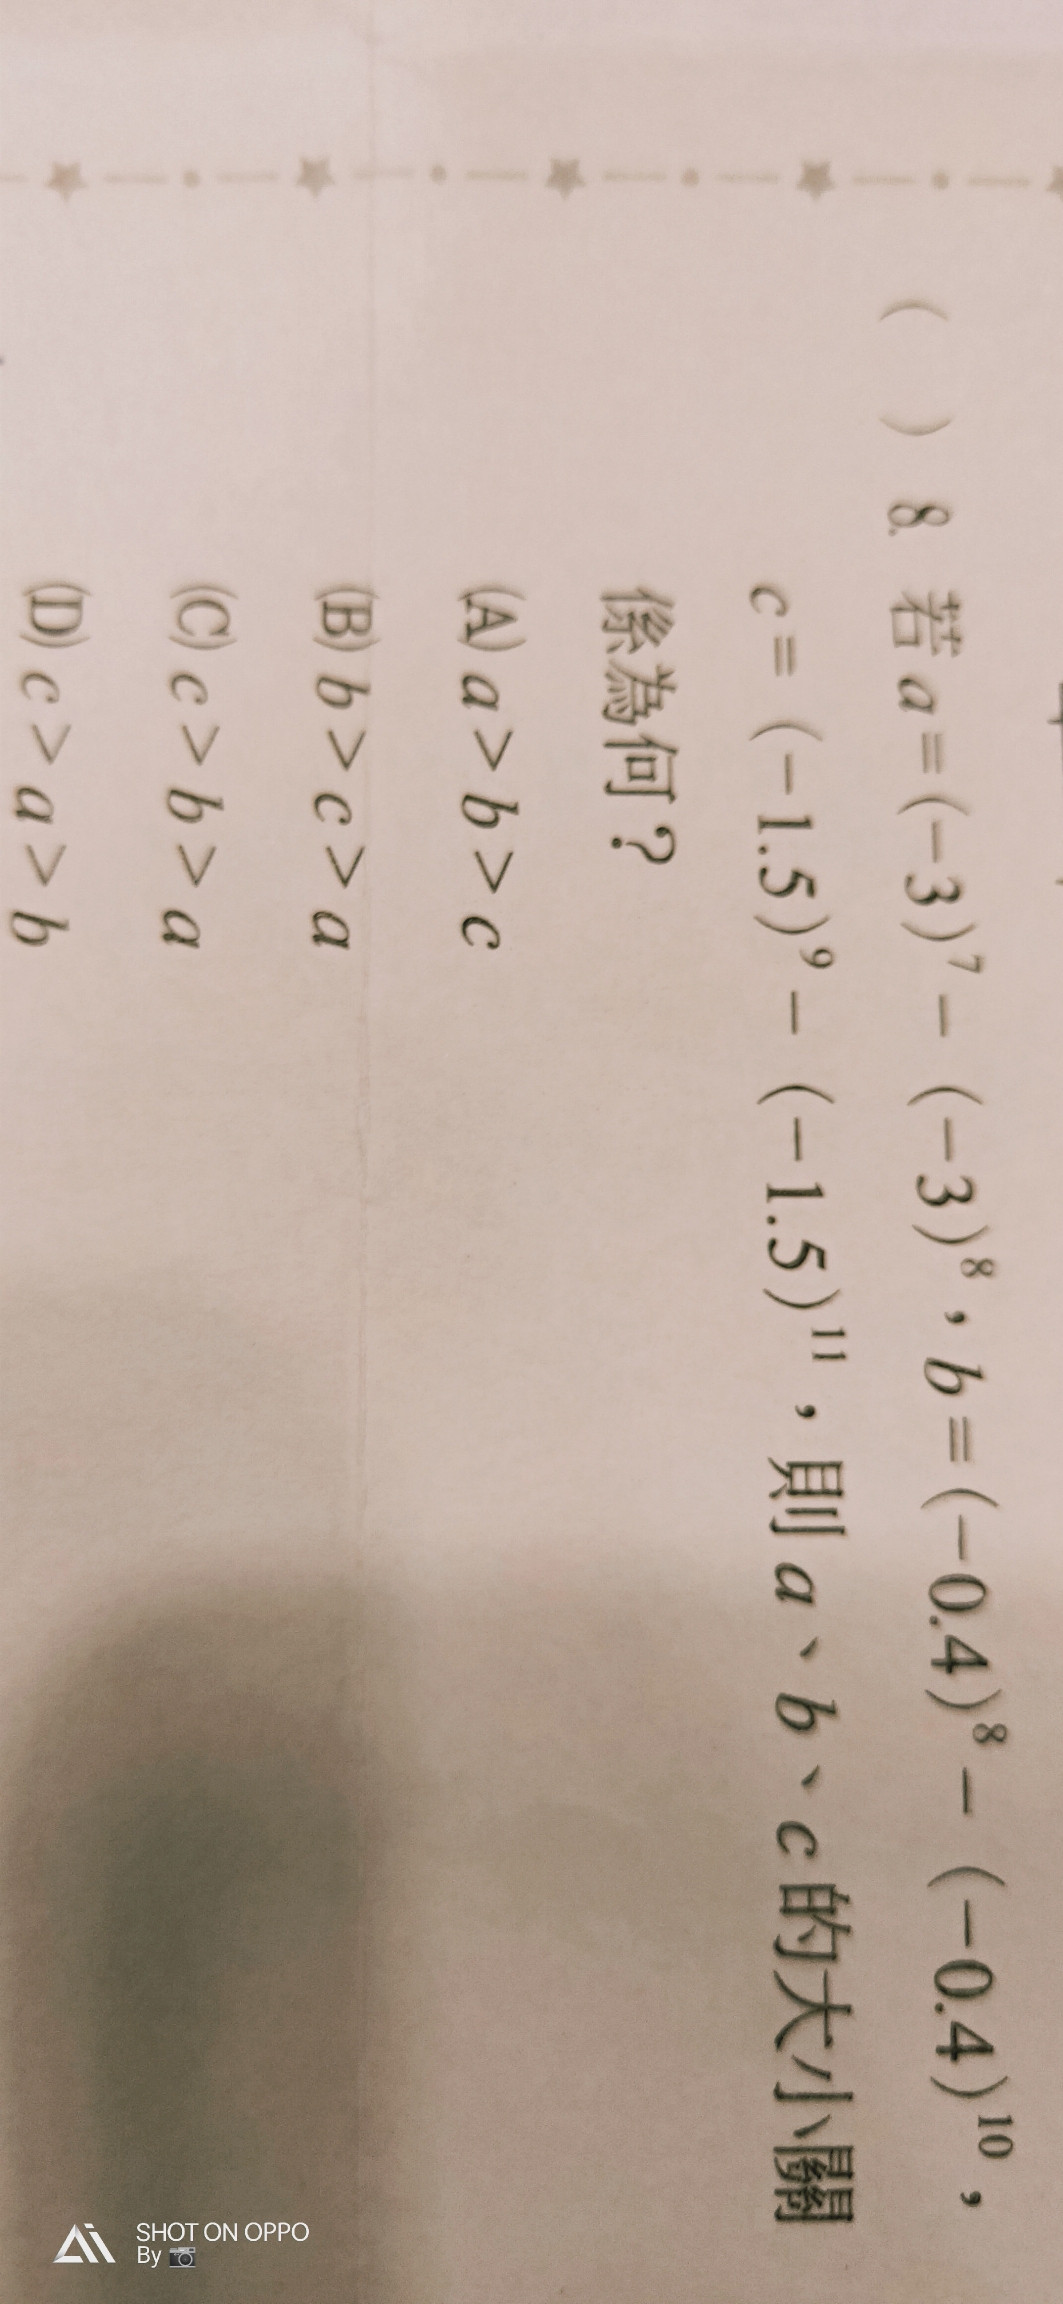 ( ) 8. 若a=(-3)⁷-(-3)⁸,b=(-0.4)⁸-(-0.4)¹⁰,
c=(-1.5)⁹-(-1.5)¹¹,則a、b、c的大小關
係為何?
(A) a>b>c
(B) b>c>a
(C) c>b>a
(D) c>a>b
SHOT ON OPPO
By